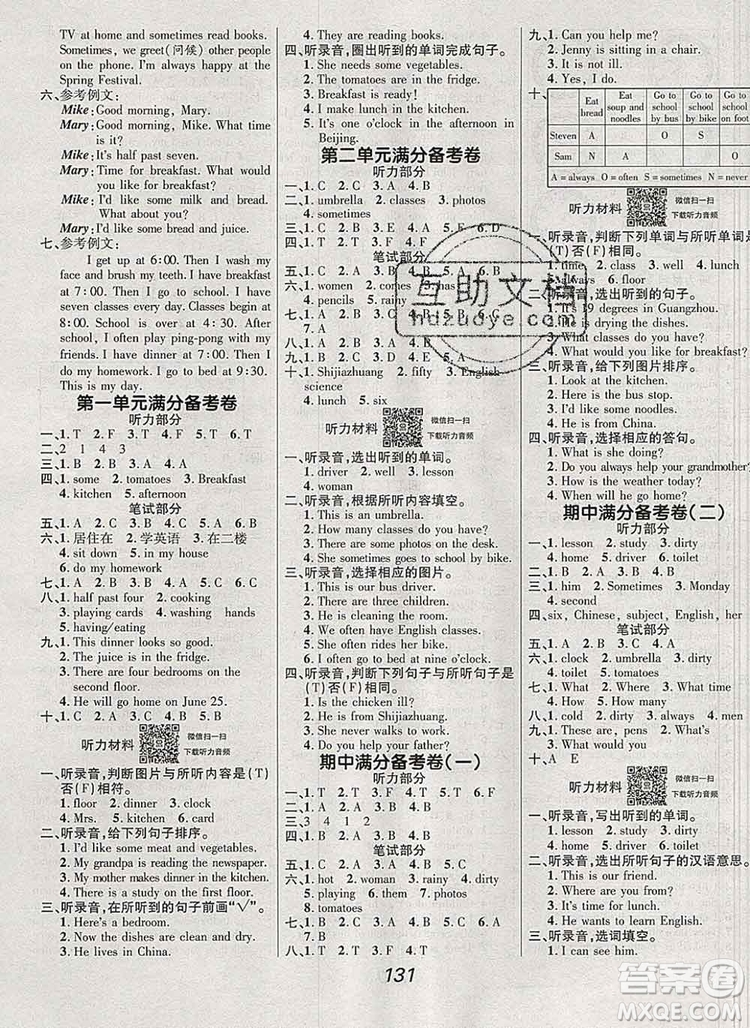 TV at home and sometimes read books.
Sometimes, we greet(问候) other people
on the phone. I'm always happy at the
Spring Festival.
六、参考例文：
Mike: Good morning, Mary.
Mary: Good morning, Mike. What time
is it?
Mike: It's half past seven.
Mary: Time for breakfast! What would
you like for breakfast?
Mike: I'd like some milk and bread.
Mary: I'd like some bread and juice.
七、参考例文：
I get up at 6:00. Then I wash my
face and brush my teeth. I have breakfast
at 7:00. Then I go to school. I have
seven classes every day. Classes begin at
8:00. School is over at 4:30. After
school, I often play ping-pong with my
friends. I have dinner at 7:00. Then I
do my homework. I go to bed at 9:30.
This is my day.
第一单元满分备考卷
听力部分
一、1. T 2. F 3. T 4. F 5. T
二、2 1 4 3
三、1. B 2. B 3. A 4. A
四、1. some 2. tomatoes 3. Breakfast
4. kitchen 5. afternoon
笔试部分
五、1. C 2. B 3. A 4. C 5. A
六、1. 居住在 2. 学英语 3. 在二楼
4. sit down 5. in the kitchen
6. do my homework
七、1. C 2. A 3. C 4. A
八、1. half past four 2. cooking
3. playing cards 4. washing hands
5. having/eating
九、1. This dinner looks so good.
2. The juice is in the fridge.
3. There are four bedrooms on the
second floor.
4. He will go home on June 25.
十、1. C 2. B 3. C 4. A 5. B
听力材料 微信扫一扫
下载听力音频
一、听录音，判断图片与所听内容是(T)
否(F)相符。
1. floor 2. dinner 3. bread
4. card 5. clock
二、听录音，给下列句子排序。
1. I'd like some meat and vegetables.
2. My grandpa is reading the newspaper.
3. My mother makes dinner in the kitchen.
4. There is a study on the first floor.
三、听录音，在所听到的句子前画“√”。
1. Here's a bedroom.
2. Now the dishes are clean and dry.
3. He lives in China.
4. They are reading books.
四、听录音，圈出听到的单词完成句子。
1. She needs some vegetables.
2. The tomatoes are in the fridge.
3. Breakfast is ready!
4. I make lunch in the kitchen.
5. It's one o'clock in the afternoon in
Beijing.
第二单元满分备考卷
听力部分
一、1. C 2. C 3. A 4. B
二、1. umbrella 2. classes 3. photos
4. sometimes
三、1. C 2. B 3. A 4. B 5. C 6. A
四、1. T 2. F 3. F 4. T
笔试部分
五、1. C 2. B
六、1. women 2. comes
4. pencils 5. rainy
七、1. C 2. A
八、1. C
九、1. B 2.
十、1. Shijiazhuang 2. fifty 3. English
science
4. lunch 5. six
听力材料 微信扫一扫
下载听力音频
一、听录音，选出听到的单词。
1. driver 2. well 3. lesson
4. woman
二、听录音，根据所听内容填空。
1. This is an umbrella.
2. How many classes do you have?
3. There are some photos on the desk.
4. She sometimes goes to school by bike.
三、听录音，选择相应的图片。
1. This is our bus driver.
2. I have an art class.
3. He is cleaning the room.
4. We often have English classes.
5. She often rides her bike.
6. He likes playing football.
四、听录音，判断下列句子与所听句子是
(T)否(F)相同。
1. Is the chicken ill?
2. He is from Shijiazhuang.
3. She never walks to work.
4. Do you help your father?
期中满分备考卷(一)
听力部分
一、1. T 2. T 3. F 4. T 5. F
二、1. F 2. F 3. T 4. F
三、3 4 1 2
四、1. B 2. A 3. A 4. B
笔试部分
五、1. C 2. B 3. C 4. B 5. C
六、1. hot 2. woman 3. rainy 4. dirty
5. playing 6. them 7. photos
8. tomatoes
七、1. C 2. B 3. A 4. B 5. C 6. A
八、1. F 2. T 3. F 4. F 5. T
九、1. Can you help me?
2. Jenny is sitting in a chair.
3. It's all wet!
4. Yes, I do.
十、
Eat bread | Eat soup and noodles | Go to school by bus | Go to school by bike | Go to school on foot
Steven A O S
Sam N O A
A = always O = often S = sometimes N = never
听力材料 微信扫一扫
下载听力音频
一、听录音，判断下列单词与所听单词是
(T)否(F)相同。
1. time 2. class 3. well 4.
5. always 6. floor
二、听录音，选出听到的句子。
1. It's 19 degrees in Guangzhou.
2. I'm drying the dishes.
3. Would you like some vegetables?
4. What would you like for breakfast?
三、听录音，给下列图片排序。
1. Look at the kitchen.
2. Here is the bus stop.
3. I'd like some noodles.
4. He is from China.
四、听录音，选择相应的答句。
1. What is she doing?
2. Do you always help your grandmother?
3. How is the weather today?
4. When will he go home?
期中满分备考卷(二)
听力部分
一、1. lesson 2. study 3. dirty
4. home 5. driver 6. toilet
二、1. B 2. A 3. B 4. A
三、1. him 2. Sometimes 3. Monday
4. second
四、six, Chinese, subject, English, her
笔试部分
五、1. A 2. C 3. A 4. C
六、1. clock 2. umbrella 3. dirty
4. toilet 5. tomatoes
七、1. What 2. When 3. What
4. How 5. How many
八、1. cold 2. dirty 3. woman
4. always
九、1. These, are, pens 2. What's
3. Sometimes
十、A E
听力材料 微信扫一扫
下载听力音频
一、听录音，写出听到的单词。
1. lesson 2. study 3. dirty
4. home 5. driver 6. toilet
二、听录音，选出所听句子的汉语意思。
1. This is our friend.
2. I'm cleaning the house.
3. It's time for lunch.
4. He wants to learn English.
三、听录音，选词填空。
1. I can see him.
131
互助文档
huzuoye.com
答案圈
MXQE.COM